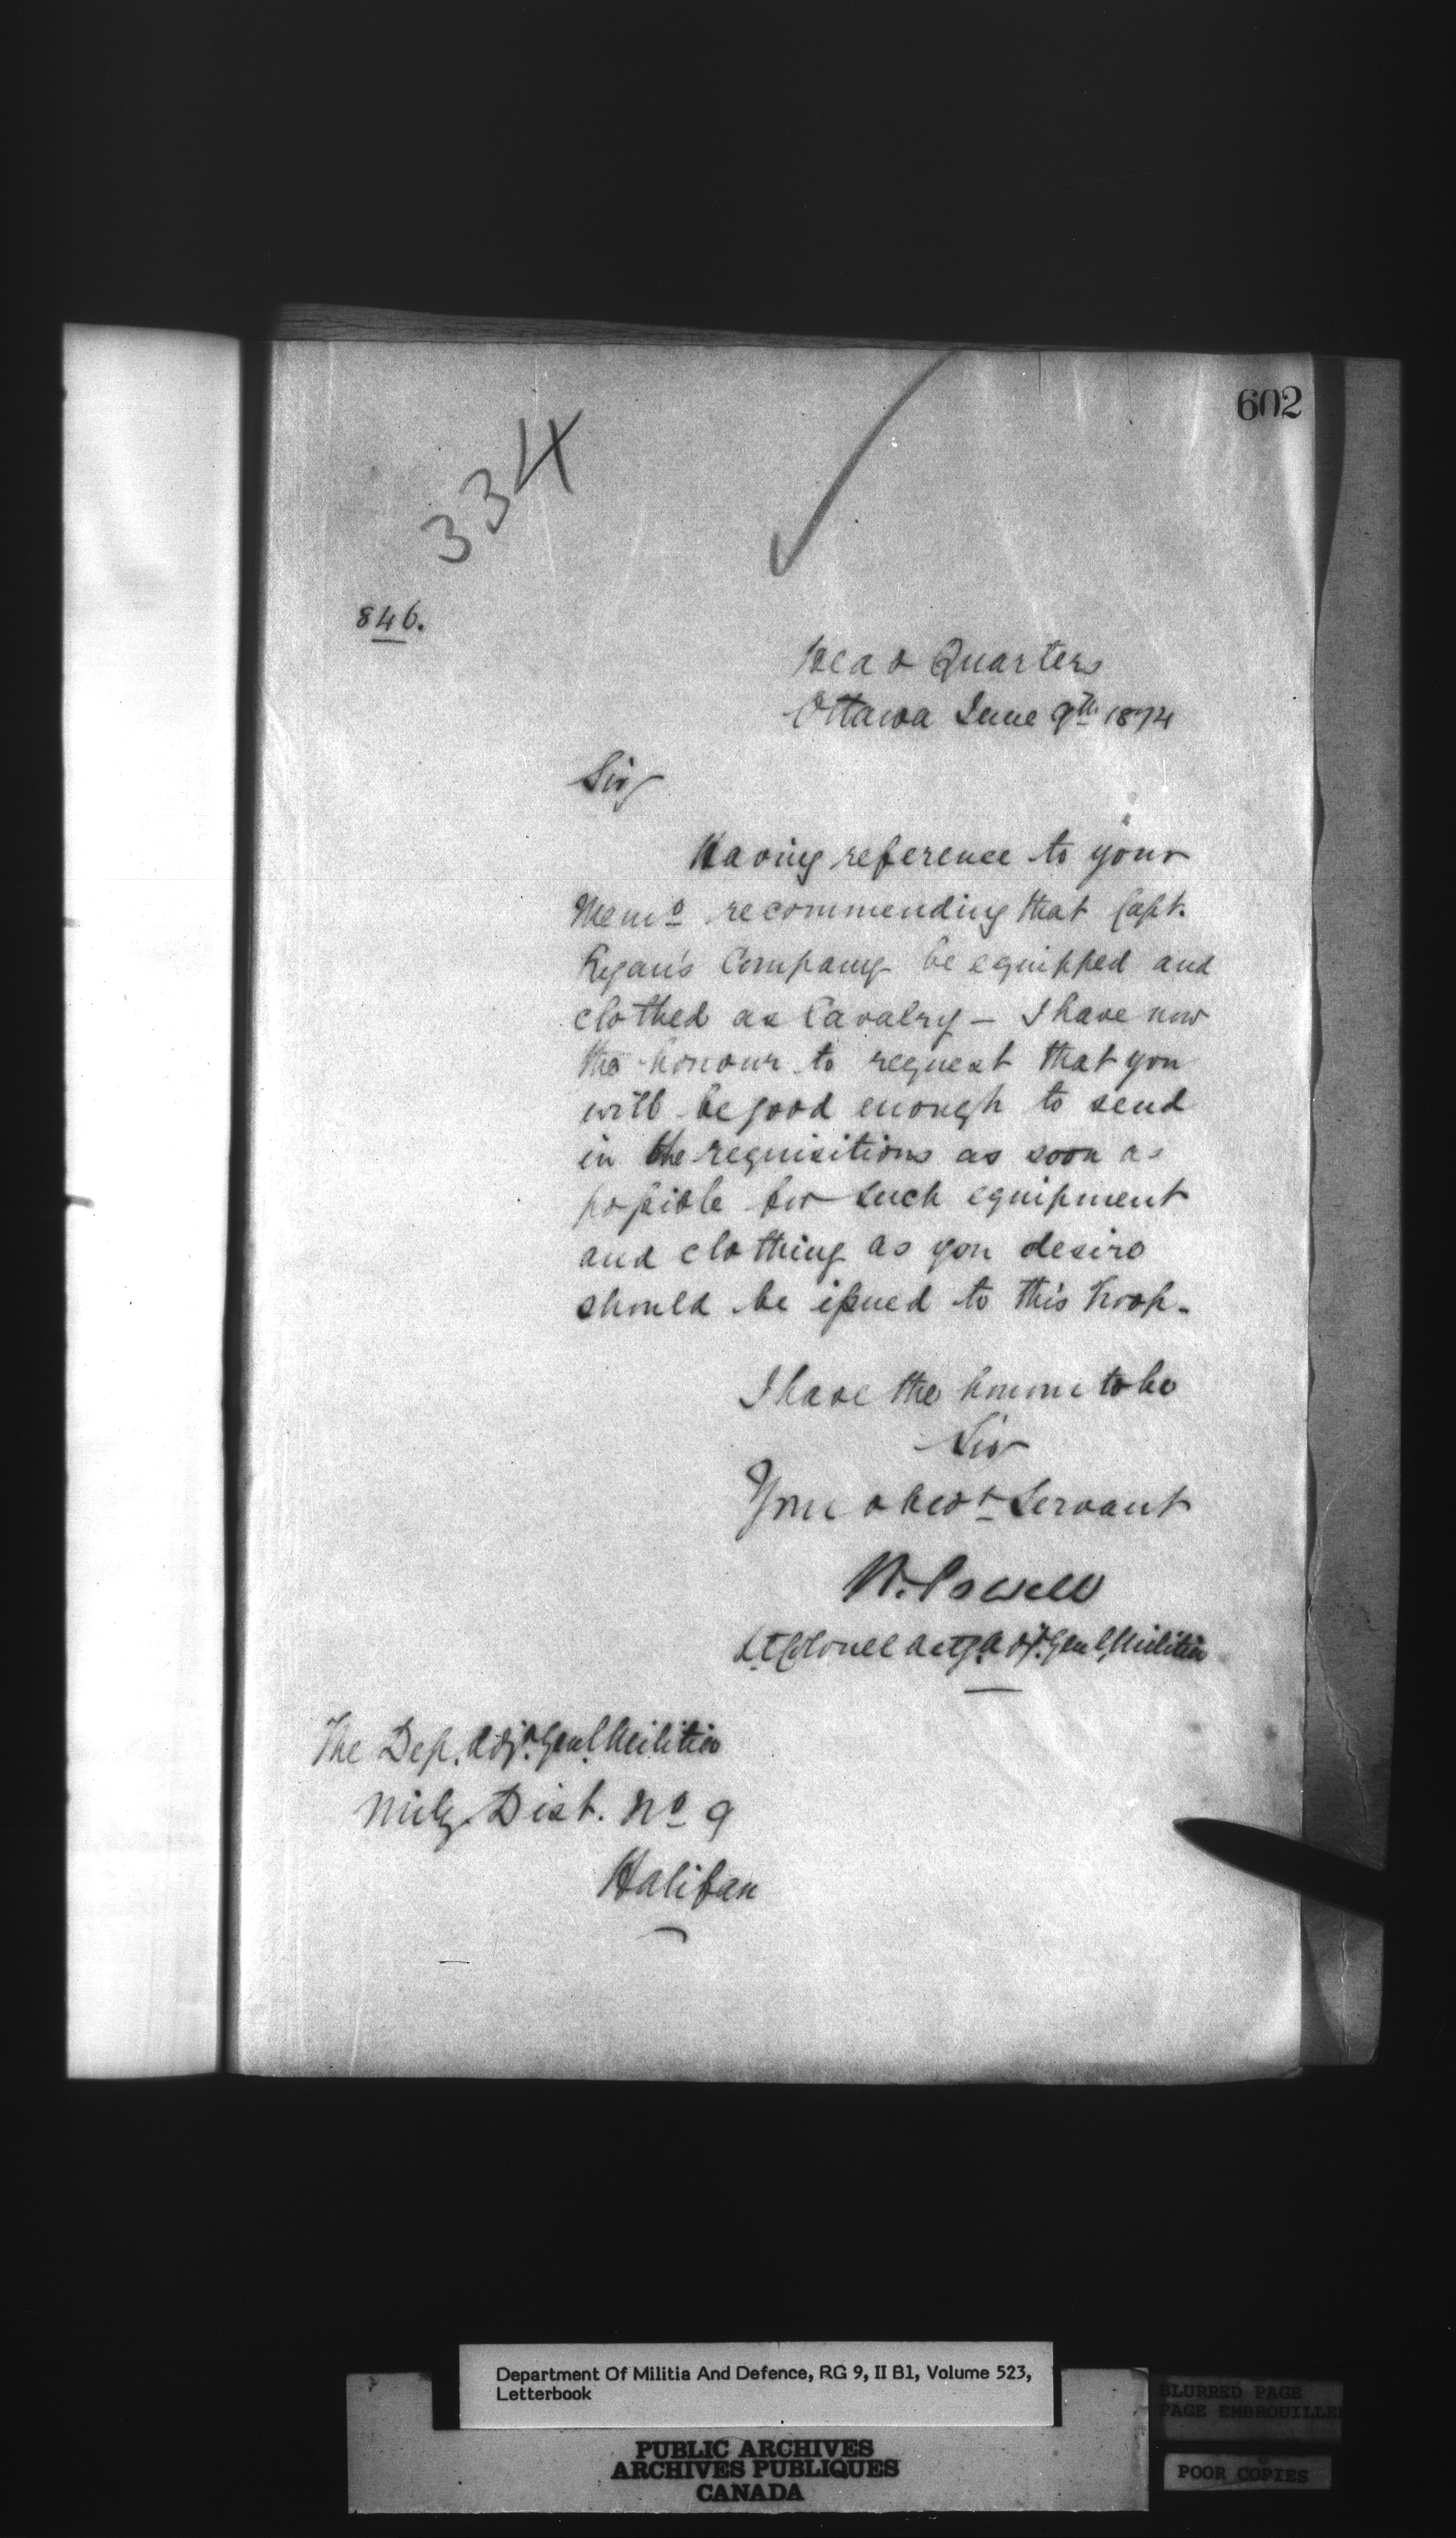 602
334
846.
Head Quarters
Ottawa June 9th 1874
Sir
Having reference to your
Memo recommending that Capt.
Ryan's Company be equipped and
clothed as Cavalry – I have now
the honour to request that you
will be good enough to send
in the requisitions as soon as
possible for such equipment
and clothing as you desire
should be issued to this troop.
I have the honour to be
Sir
Your obedt Servant
W. Powell
Lt Colonel Actg. Adjt. Genl. Militia
The Dep. Adjt. Genl. Militia
Mily. Dist. No 9
Halifax
Department Of Militia And Defence, RG 9, II B1, Volume 523,
Letterbook
BLURRED PAGE
PAGE EMBROUILLE
PUBLIC ARCHIVES
ARCHIVES PUBLIQUES
CANADA
POOR COPIES